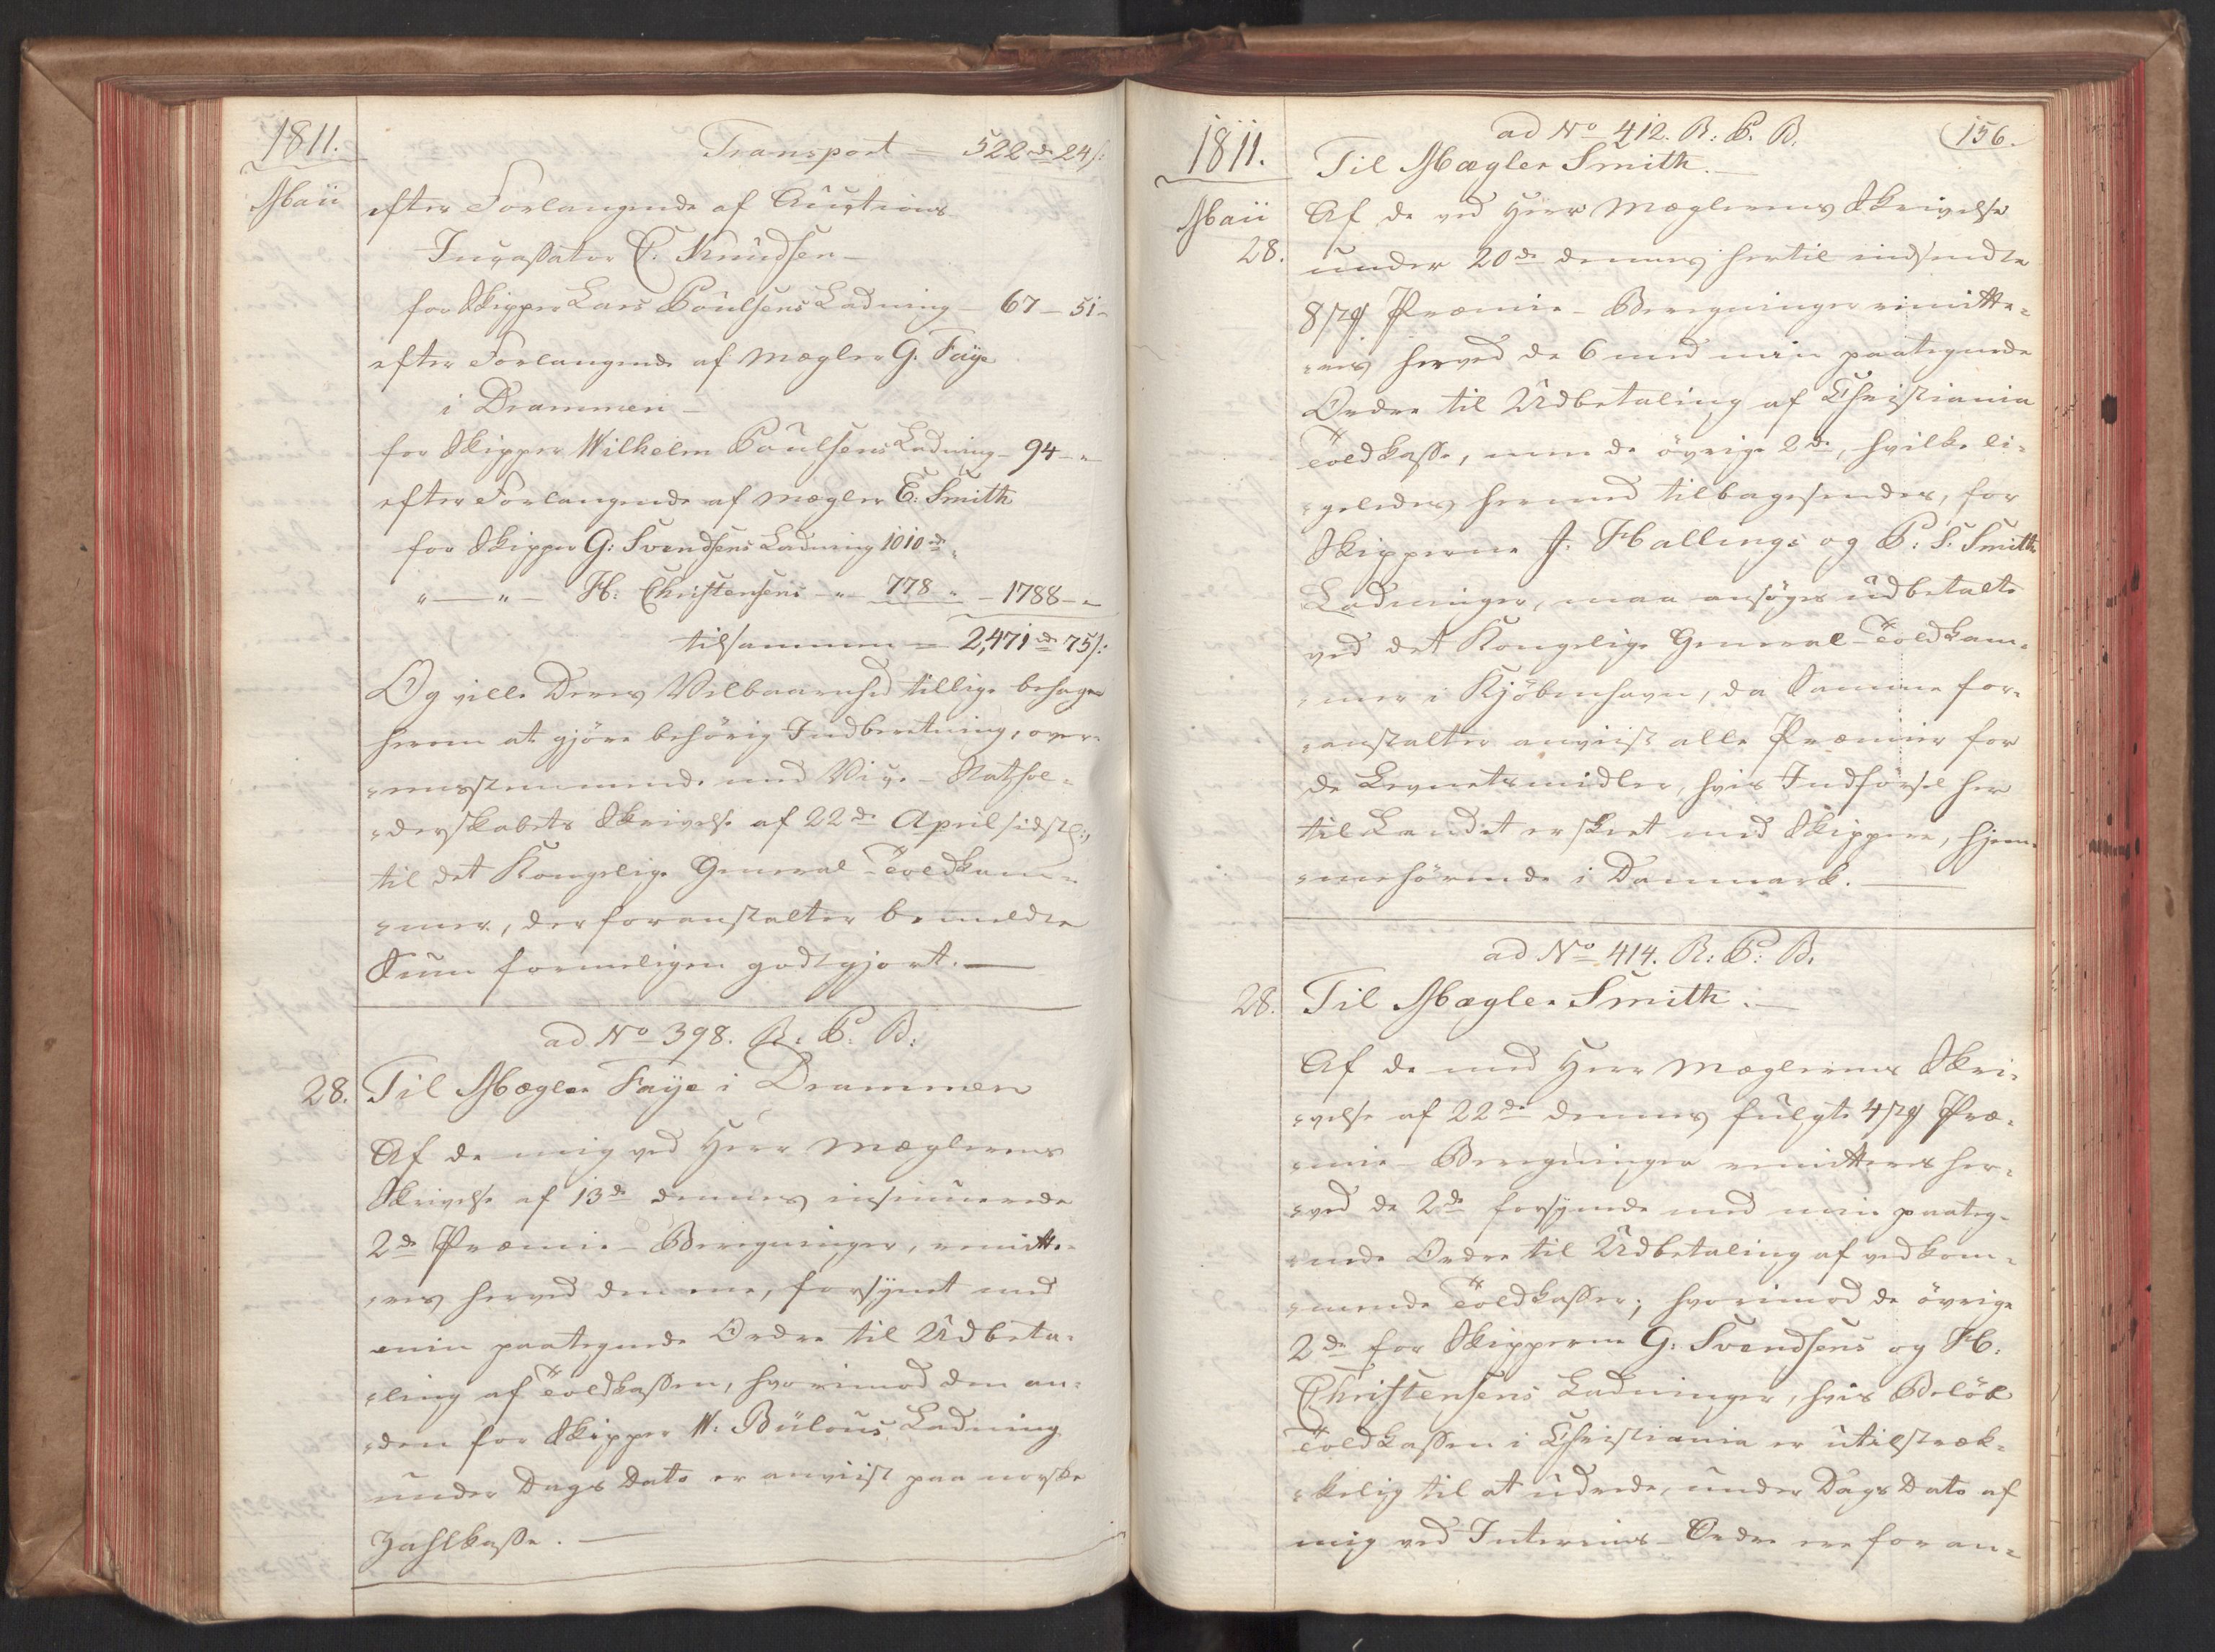 1811.
Transport = 522 rd 24 s:
Maii
efter Forlangende af Auctions
Incassator C. Knudsen –
for Skipper Lars Poulsens Ladning – 67 – 51 –
efter Forlangende af Mægler G. Faÿe
i Drammen –
for Skipper Wilhelm Poulsens Ladning – 94 – "
efter Forlangende af Mægler E: Smith
for Skipper G: Svendsens Ladning 1010 rd "
" — " — H: Christensens – " – 778 " – 1788 – "
tilsammen = 2,471 rd 75 s:
Og ville Deres Velbaarenhed tillige behage
herom at gjöre behörig Indberetning, over-
eensstemmende med Vice-Stathol-
derskabets Skrivelse af 22de April sidstl:,
til det Kongelige General-Toldkam-
mer, der foranstalter bemeldte
Sum formeligen godtgjort. —
ad No 398. R: P. B:
28. Til Mægler Faÿe i Drammen
Af de mig ved Herr Mæglerens
Skrivelse af 13de dennes insinuerede
2de Præmie-Beregninger, remitte-
res herved den ene, forsÿnet med
min paategnede Ordre til Udbeta-
ling af Toldkassen, hvorimod den an-
den for Skipper W: Bülous Ladning
under Dags Dato er anviist paa norske
Zahlkasse. —
156.
1811.
ad No 412. R: P. B.
Til Mægler Smith. —
Maii
28.
Af de ved Herr Mæglerens Skrivelse
under 20de dennes hertil indsendte
8 Præmie-Beregninger remitte-
res herved de 6 med min paategnede
Ordre til Udbetaling af Christiania
Toldkasse, men de övrige 2de, hvilke li-
geledes hermed tilbagesendes, for
Skipperne J. Hallings og P: S. Smith
Ladninger, maa ansöges udbetalte
ved det Kongelige General-Toldkam-
mer i Kjöbenhavn, da Samme for-
anstalter anviist alle Præmier for
de Levnetsmidler, hvis Indförsel her
til Landet er skeet med Skippere, hjem-
mehörende i Danmark. —
ad No 414. R: P: B.
28. Til Mægler Smith. —
Af de med Herr Mæglerens Skri-
velse af 22de dennes fulgte 4 Præ-
mie-Beregninger remitteres her-
ved de 2de forsÿnede med min paateg-
nede Ordre til Udbetaling af vedkom-
mende Toldkasser; hvorimod de övrige
2de for Skipperne G: Svendsens og H.
Christensens Ladninger, hvis Belöb
Toldkassen i Christiania er utilstræk-
kelig til at udrede, under Dags Dato af
mig ved Interims-Ordre ere foran-